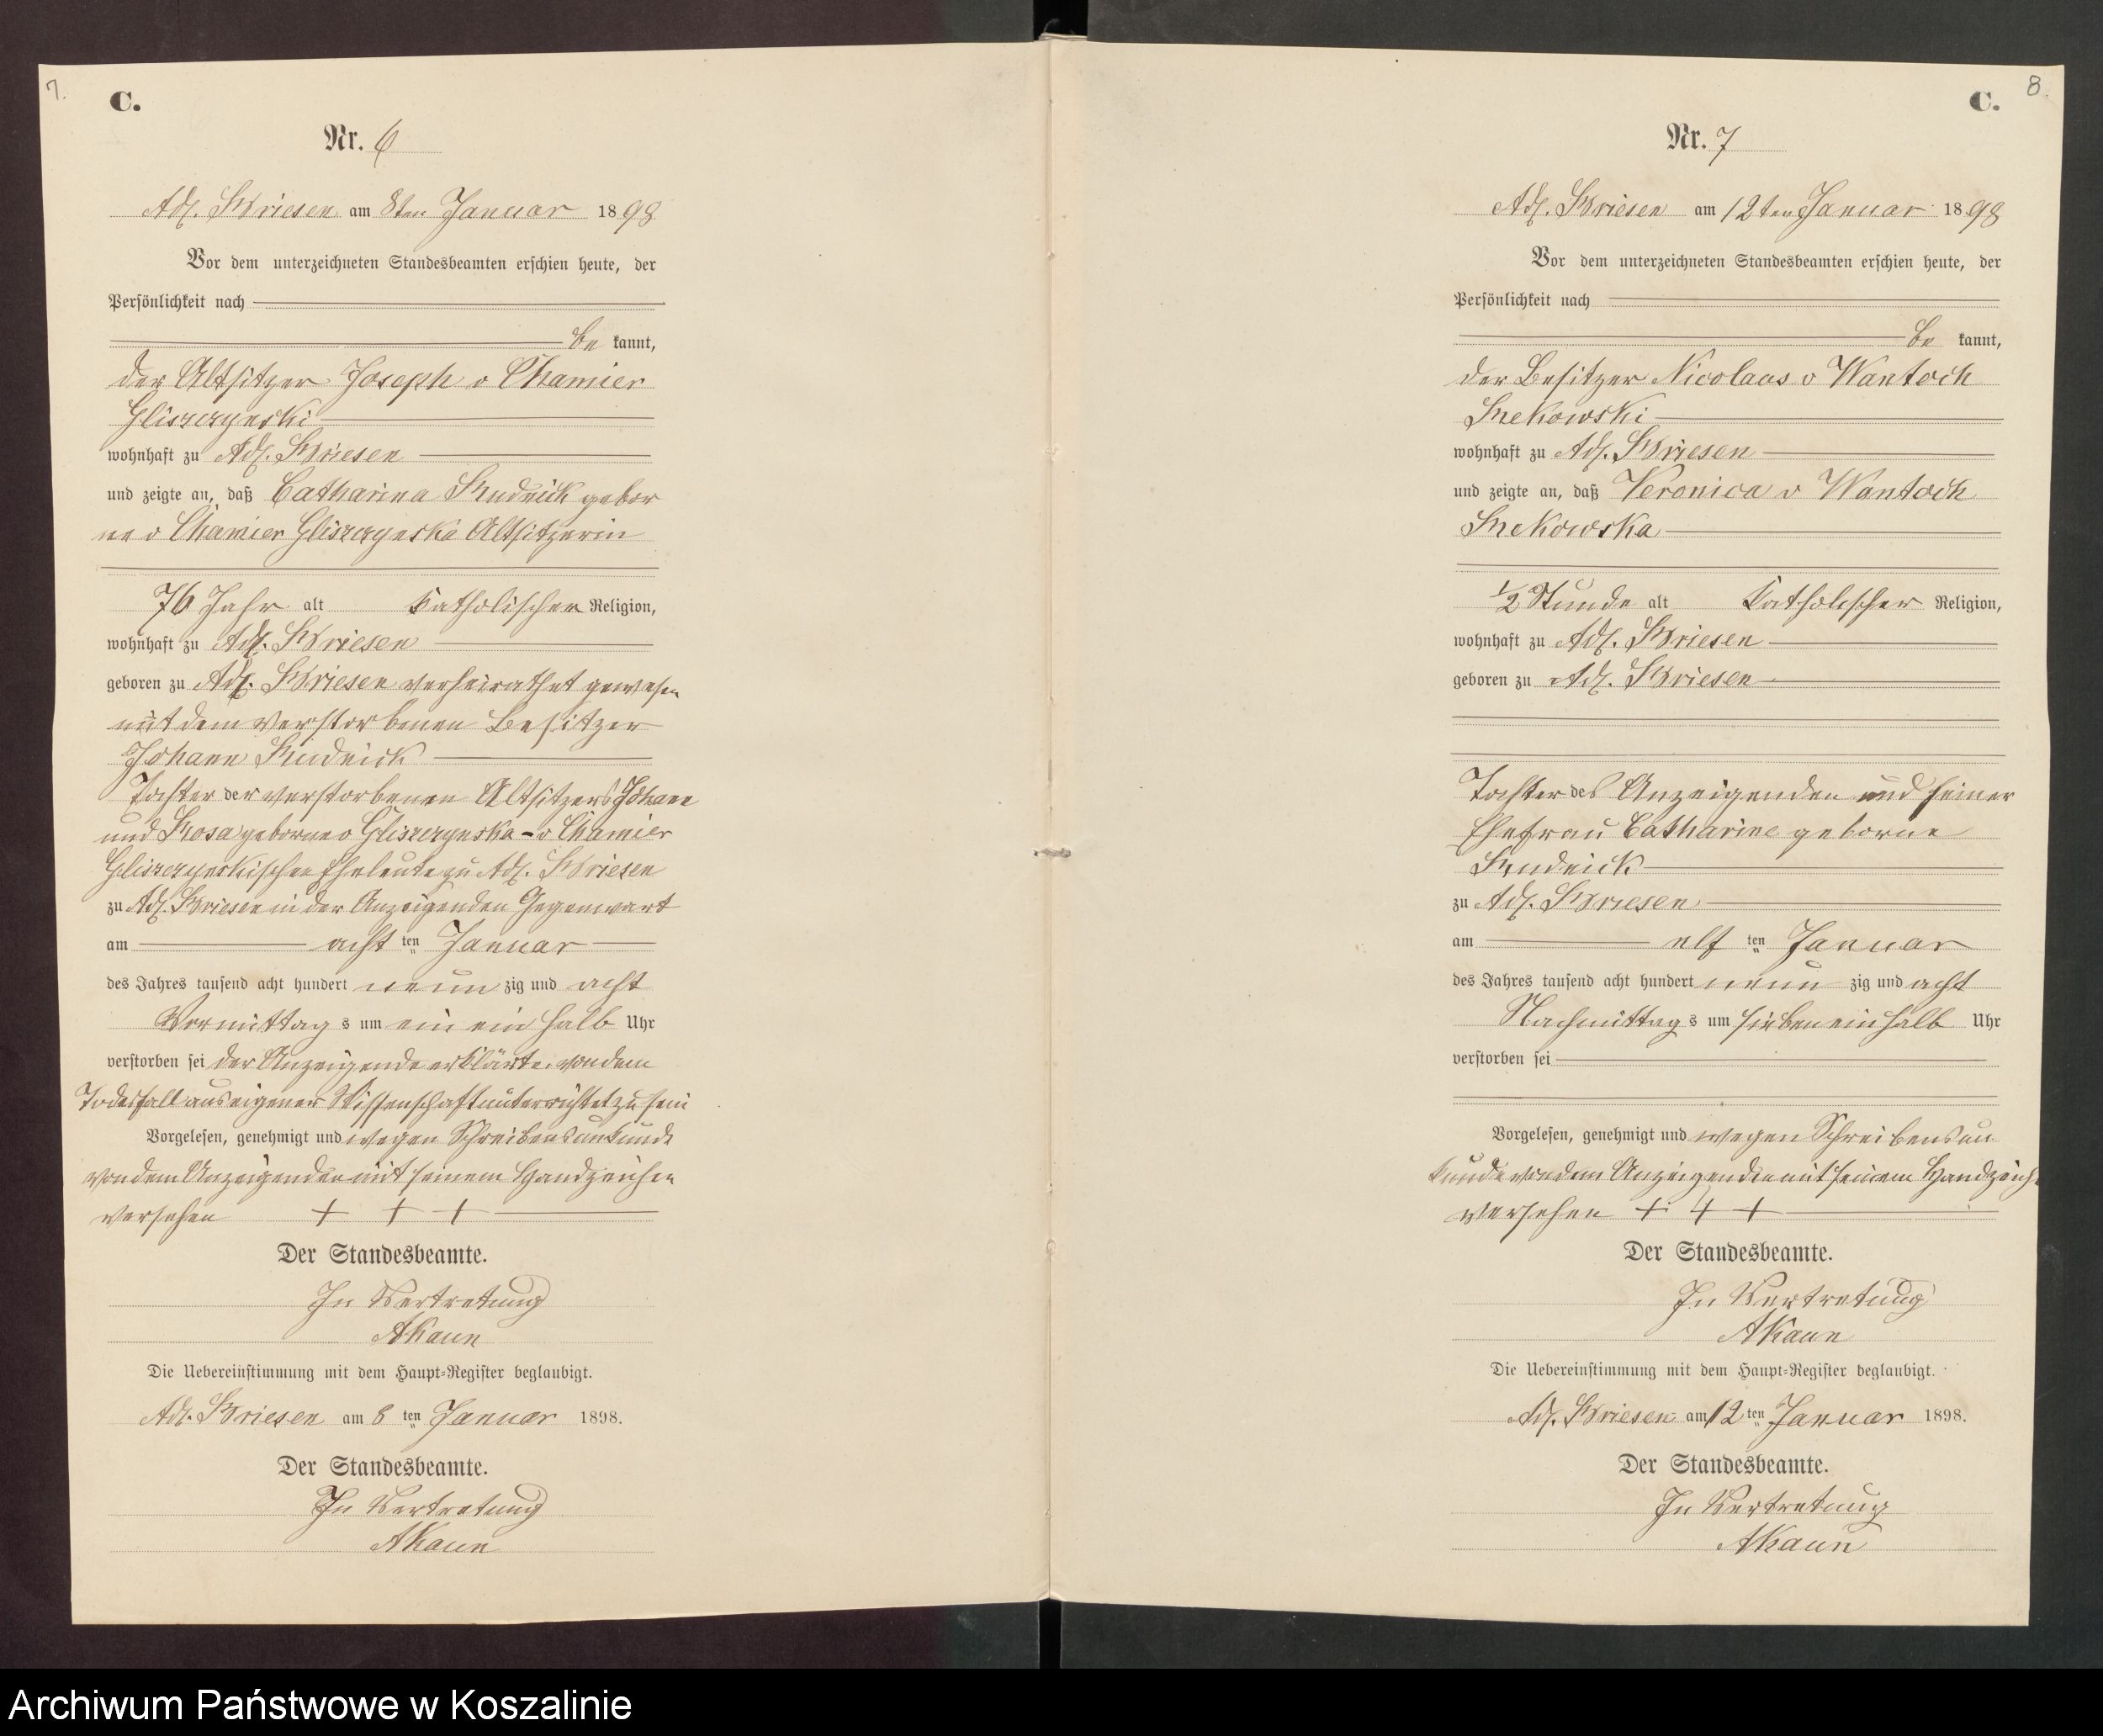 7.
C.
Nr. 6
Adl. Briesen am 8ten Januar 1898
Vor dem unterzeichneten Standesbeamten erschien heute, der
Persönlichkeit nach
be kannt,
der Altsitzer Joseph v Chamier
Gliszczynski
wohnhaft zu Adl. Briesen
und zeigte an, daß Catharina Rudnick gebor
ne v Chamier Gliszczynska Altsitzerin
76 Jahr alt katholischer Religion,
wohnhaft zu Adl. Briesen
geboren zu Adl. Briesen verheirathet gewesen
mit dem verstorbenen Besitzer
Johann Rudnick
Tochter der verstorbenen Altsitzers Johann
und Rosa geborne v Gliszczynska - v Chamier
Gliszczynskischen Eheleute zu Adl. Briesen
zu Adl. Briesen in der Anzeigenden Gegenwart
am acht ten Januar
des Jahres tausend acht hundert neun zig und acht
Vormittag s um ein ein halb Uhr
verstorben sei der Anzeigende erklärte, von dem
Todesfall aus eigener Wissenschaft unterrichtet zu sein
Vorgelesen, genehmigt und wegen Schreibensunkunde
von dem Anzeigenden mit seinem Handzeichen
versehen + + +
Der Standesbeamte.
In Vertretung
AKaun
Die Uebereinstimmung mit dem Haupt-Register beglaubigt.
Adl. Briesen am 8 ten Januar 1898.
Der Standesbeamte.
In Vertretung
AKaun
8.
C.
Nr. 7
Adl. Briesen am 12ten Januar 1898
Vor dem unterzeichneten Standesbeamten erschien heute, der
Persönlichkeit nach
be kannt,
der Besitzer Nicolaus v Wantoch
Rekowski
wohnhaft zu Adl. Briesen
und zeigte an, daß Veronica v Wantoch
Rekowska
1/2 Stunde alt katholischer Religion,
wohnhaft zu Adl. Briesen
geboren zu Adl. Briesen
Tochter des Anzeigenden und seiner
Ehefrau Catharine geborne
Rudnick
zu Adl. Briesen
am elf ten Januar
des Jahres tausend acht hundert neun zig und acht
Nachmittag s um sieben ein halb Uhr
verstorben sei
Vorgelesen, genehmigt und wegen Schreibensun
kunde von dem Anzeigenden mit seinem Handzeich
versehen + + +
Der Standesbeamte.
In Vertretung
AKaun
Die Uebereinstimmung mit dem Haupt-Register beglaubigt.
Adl. Briesen am 12 ten Januar 1898.
Der Standesbeamte.
In Vertretung
AKaun
Archiwum Państwowe w Koszalinie